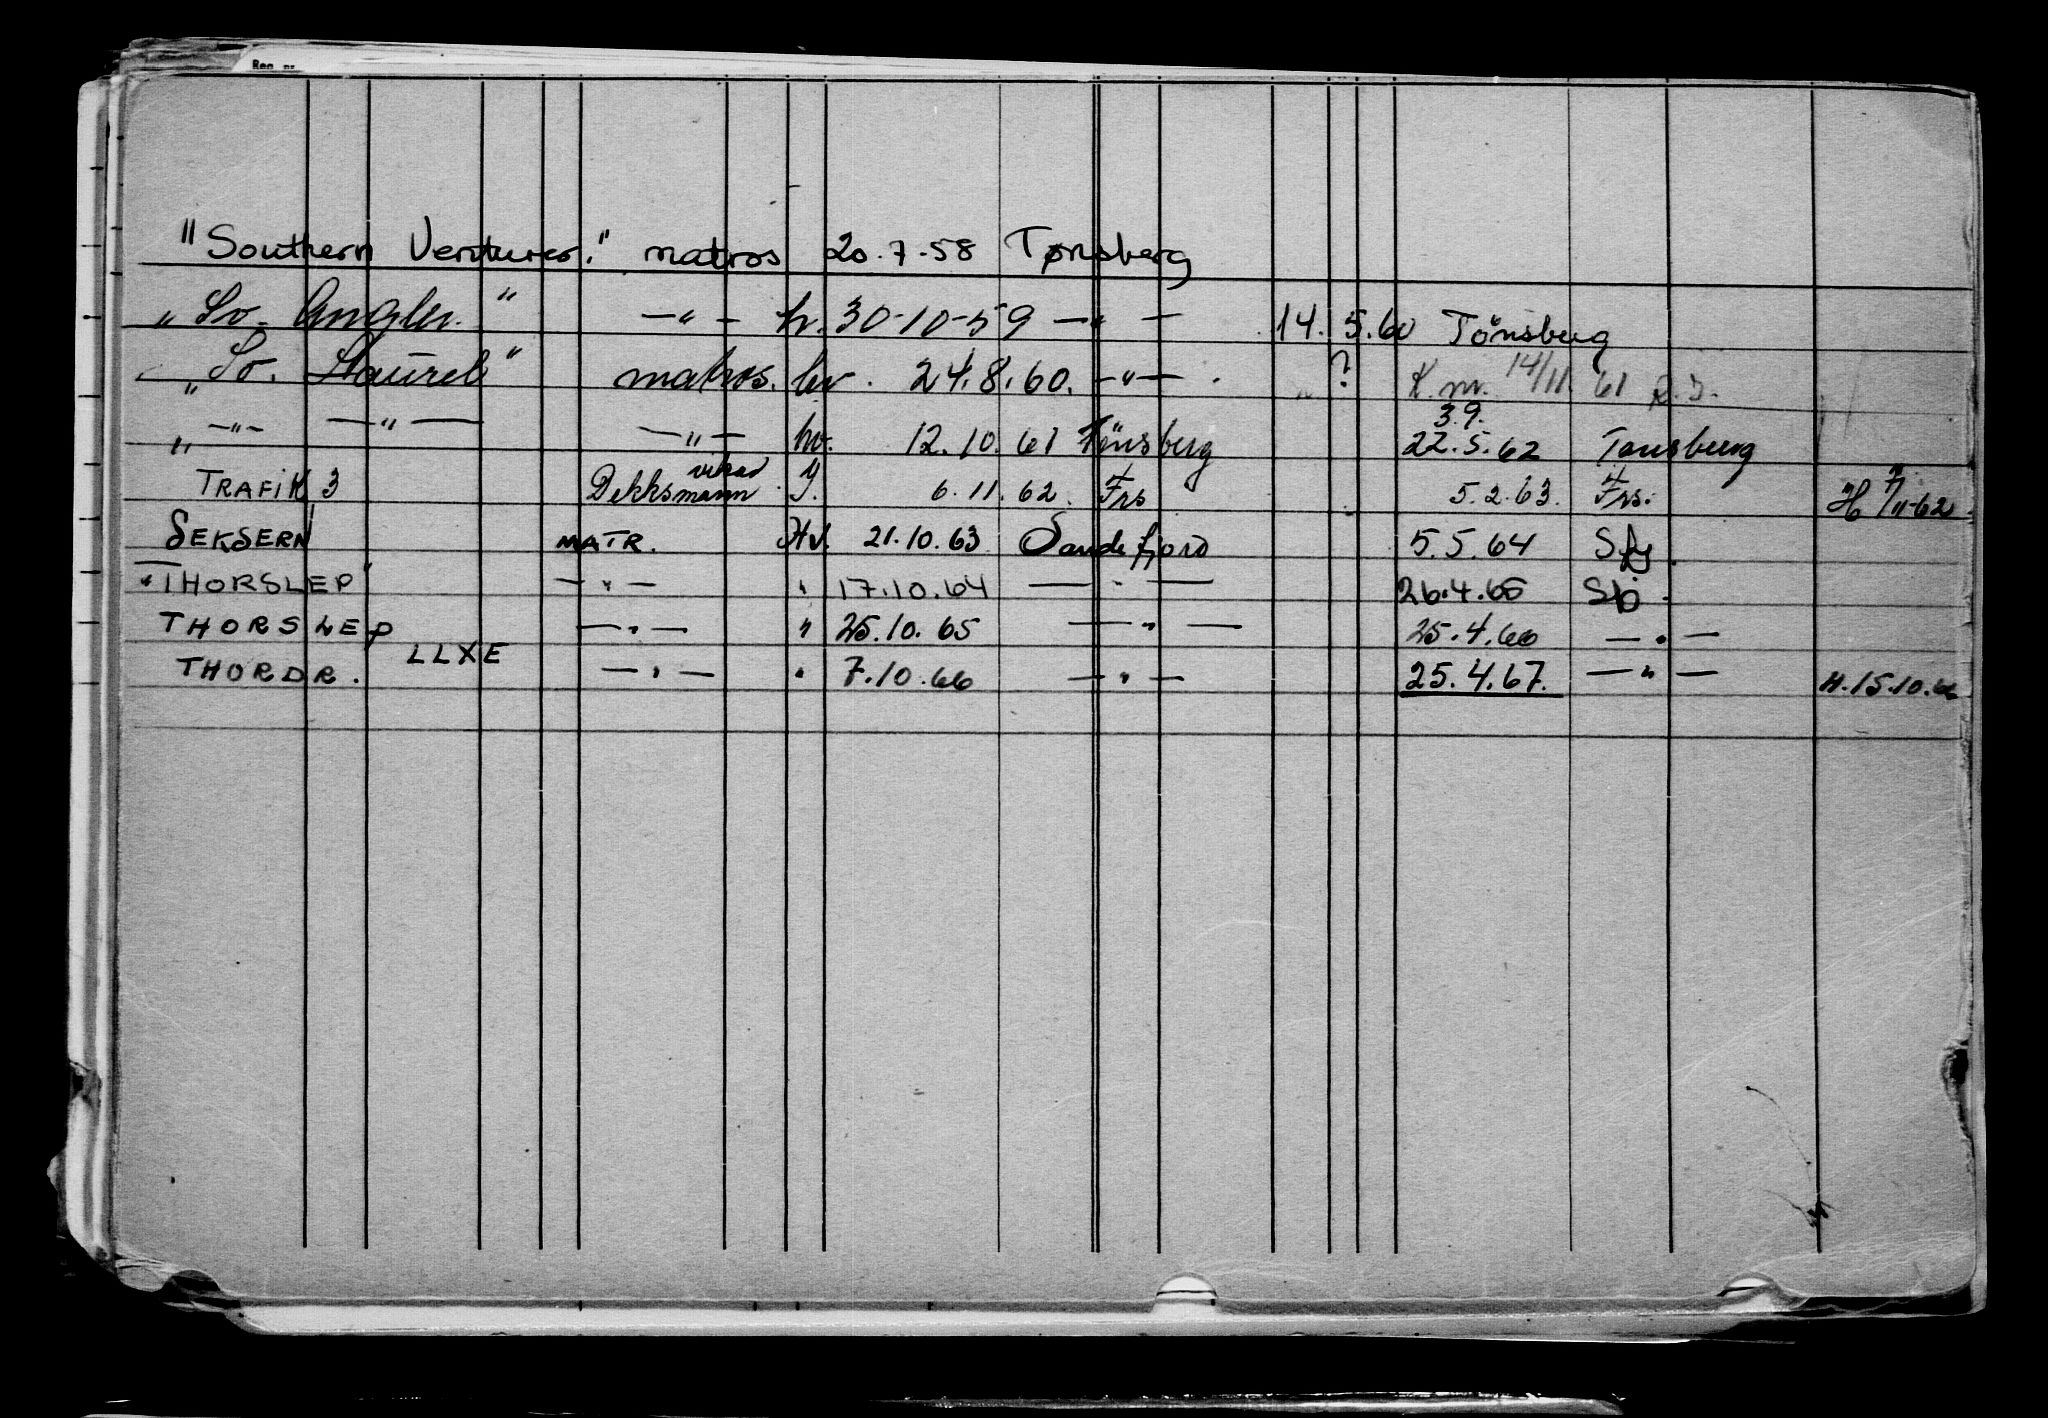 Reg. nr.
"Southern Venturer." matros 20.7.58 Tønsberg
"So. Angler." —"— h. 30-10-59 —"— 14. 5.60 Tönsberg
"So. Laurel" matros. hv. 24.8.60. —"— . ? K. nr. 14/11. 61
39.
" —"— —"— —"— hv. 12.10.61 Tönsberg 22.5.62 Tønsberg
vikar
TRAFIK 3 Dekksmann. 6.11.62. Frs 5.2.63. Frs. H 7/11-62
SEKSERN MATR. Hv. 21.10.63 Sandefjord 5.5.64 Sfj.
"THORSLEP" —"— " 17.10.64 —"— 26.4.65 Sfj.
THORSLEP —"— " 25.10.65 —"— 25.4.66 —"—
LLXE
THORDR. —"— " 7.10.66 —"— 25.4.67. —"— H.15.10.66